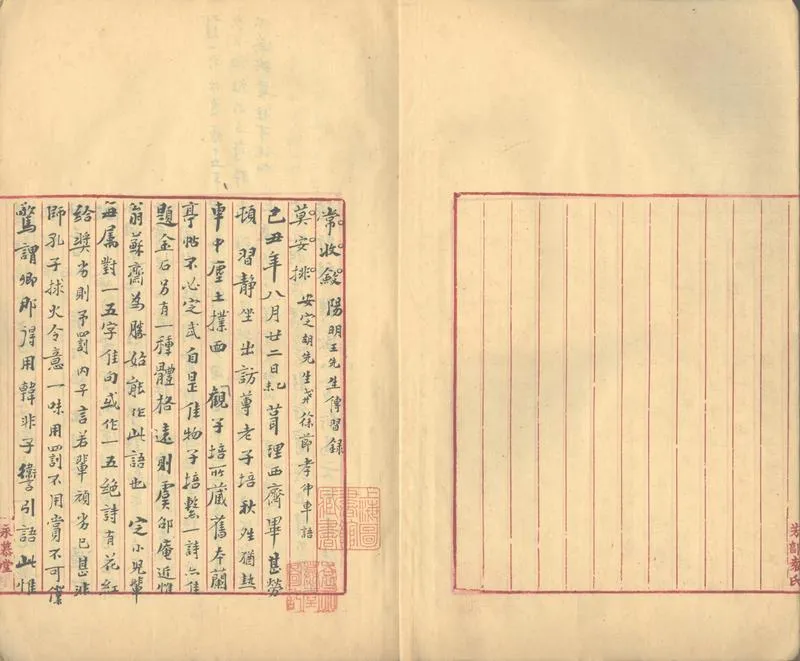 常收斂 陽明王先生傳習録
莫安排 安定胡先生案徐節孝仲車語
己丑年八月廿二日記 葺理西齋畢甚勞
頓 習靜坐出訪尊老子培秋姓猶熱
車中塵土撲面 觀子培所藏舊本蘭
亭帖不必定武自是佳物子培繫一詩亦佳
題金石另有一種體格遠則虞邵庵近惟
翁蘇齋為勝始能作此語也 定小兒輩
每屬對一五字佳句或作一五絶詩有花紅
給奬劣則予四罰 内子言若輩頑劣已甚非
師孔子捄火令意一味用罰不用賞不可僕
驚謂卿那得用韓非子衞引語此惟
永慕堂